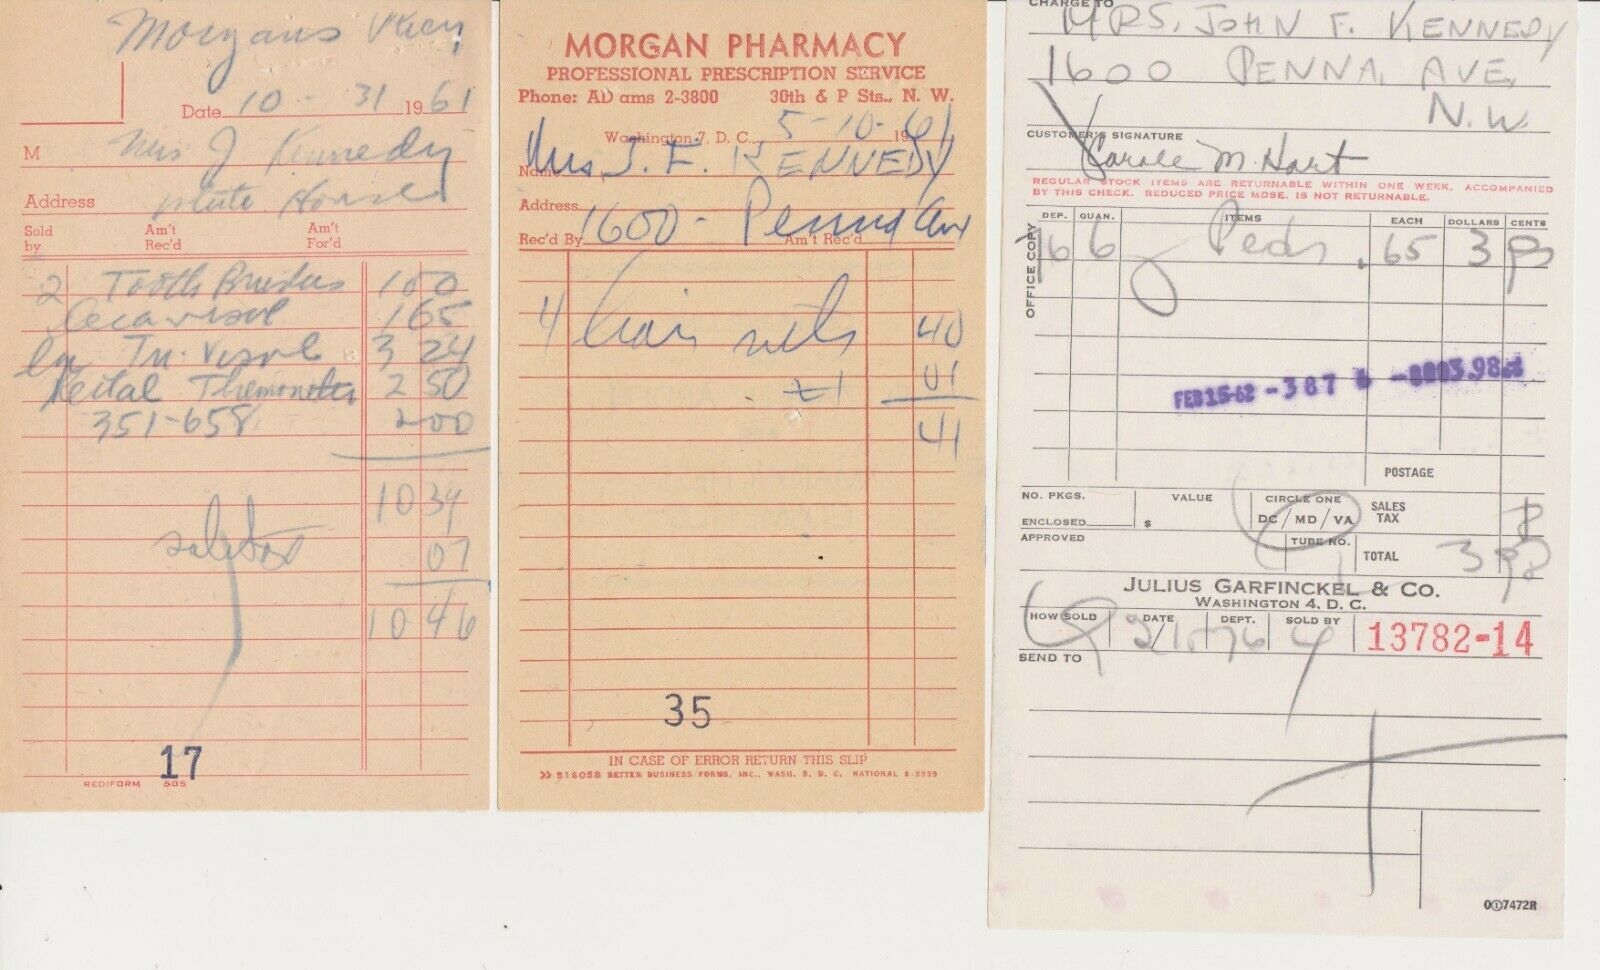 Morgans
Date 10-31 1961
M Mrs J Kennedy
Address White House
Sold by Am't Rec'd Am't For'd
2 Tooth Brushes 1 00
1 65
Tri-Visol 3 24
Rectal Thermometer 2 50
351-658 2 00
10 39
07
10 46
17
REDIFORM 5G5
MORGAN PHARMACY
PROFESSIONAL PRESCRIPTION SERVICE
Phone: AD ams 2-3800 30th & P Sts., N. W.
Washington 7, D. C., 5-10- 1961
Name Mrs J. F. KENNEDY
Address 1600 - Penna Ave
Rec'd By Am't Rec'd
4 hair nets 40
t1 01
41
35
IN CASE OF ERROR RETURN THIS SLIP
>> 516058 BETTER BUSINESS FORMS, INC., WASH. 5, D. C. NATIONAL 8-3939
CHARGE TO
MRS. JOHN F. KENNEDY
1600 PENNA. AVE,
N.W.
CUSTOMER'S SIGNATURE
Carole M. Hart
REGULAR STOCK ITEMS ARE RETURNABLE WITHIN ONE WEEK, ACCOMPANIED
BY THIS CHECK. REDUCED PRICE MDSE. IS NOT RETURNABLE.
OFFICE COPY
DEP. QUAN. ITEMS EACH DOLLARS CENTS
76 6 Peds .65 3 98
FEB 15-62 -387 3.98
POSTAGE
NO. PKGS. VALUE CIRCLE ONE SALES
ENCLOSED $ DC / MD / VA TAX
APPROVED TUBE NO. TOTAL 3 98
JULIUS GARFINCKEL & CO.
WASHINGTON 4, D. C.
HOW SOLD DATE DEPT. SOLD BY 13782-14
2/15 76 4
SEND TO
0①7472R